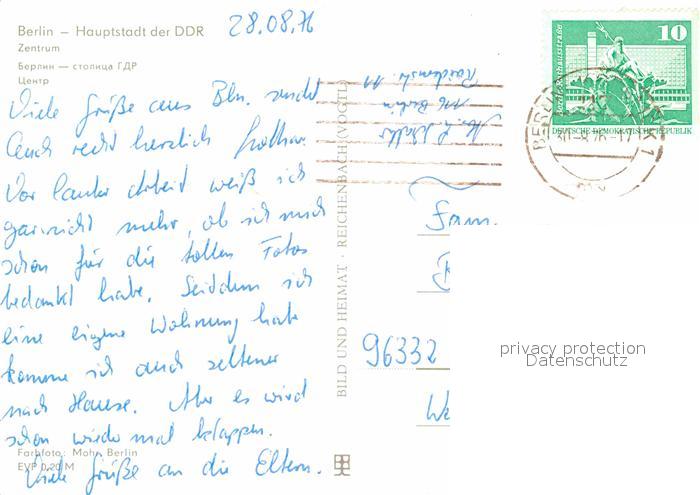 Berlin – Hauptstadt der DDR
Zentrum
Берлин — столица ГДР
Центр
28.08.76
Viele Grüße aus Bln. sendet
Euch recht herzlich
Vor lauter Arbeit weiß ich
garnicht mehr, ob ich mich
schon für die tollen Fotos
bedankt habe. Seitdem ich
eine eigene Wohnung habe
komme ich auch seltener
nach Hause. Aber es wird
schon wieder mal klappen.
Viele Grüße an die Eltern.
Farbfoto: Mohr, Berlin
EVP 0,20 M
BILD UND HEIMAT · REICHENBACH (VOGTL)
Berlin
11
Fam.
96332
10
DEUTSCHE DEMOKRATISCHE REPUBLIK
BERLIN
privacy protection
Datenschutz